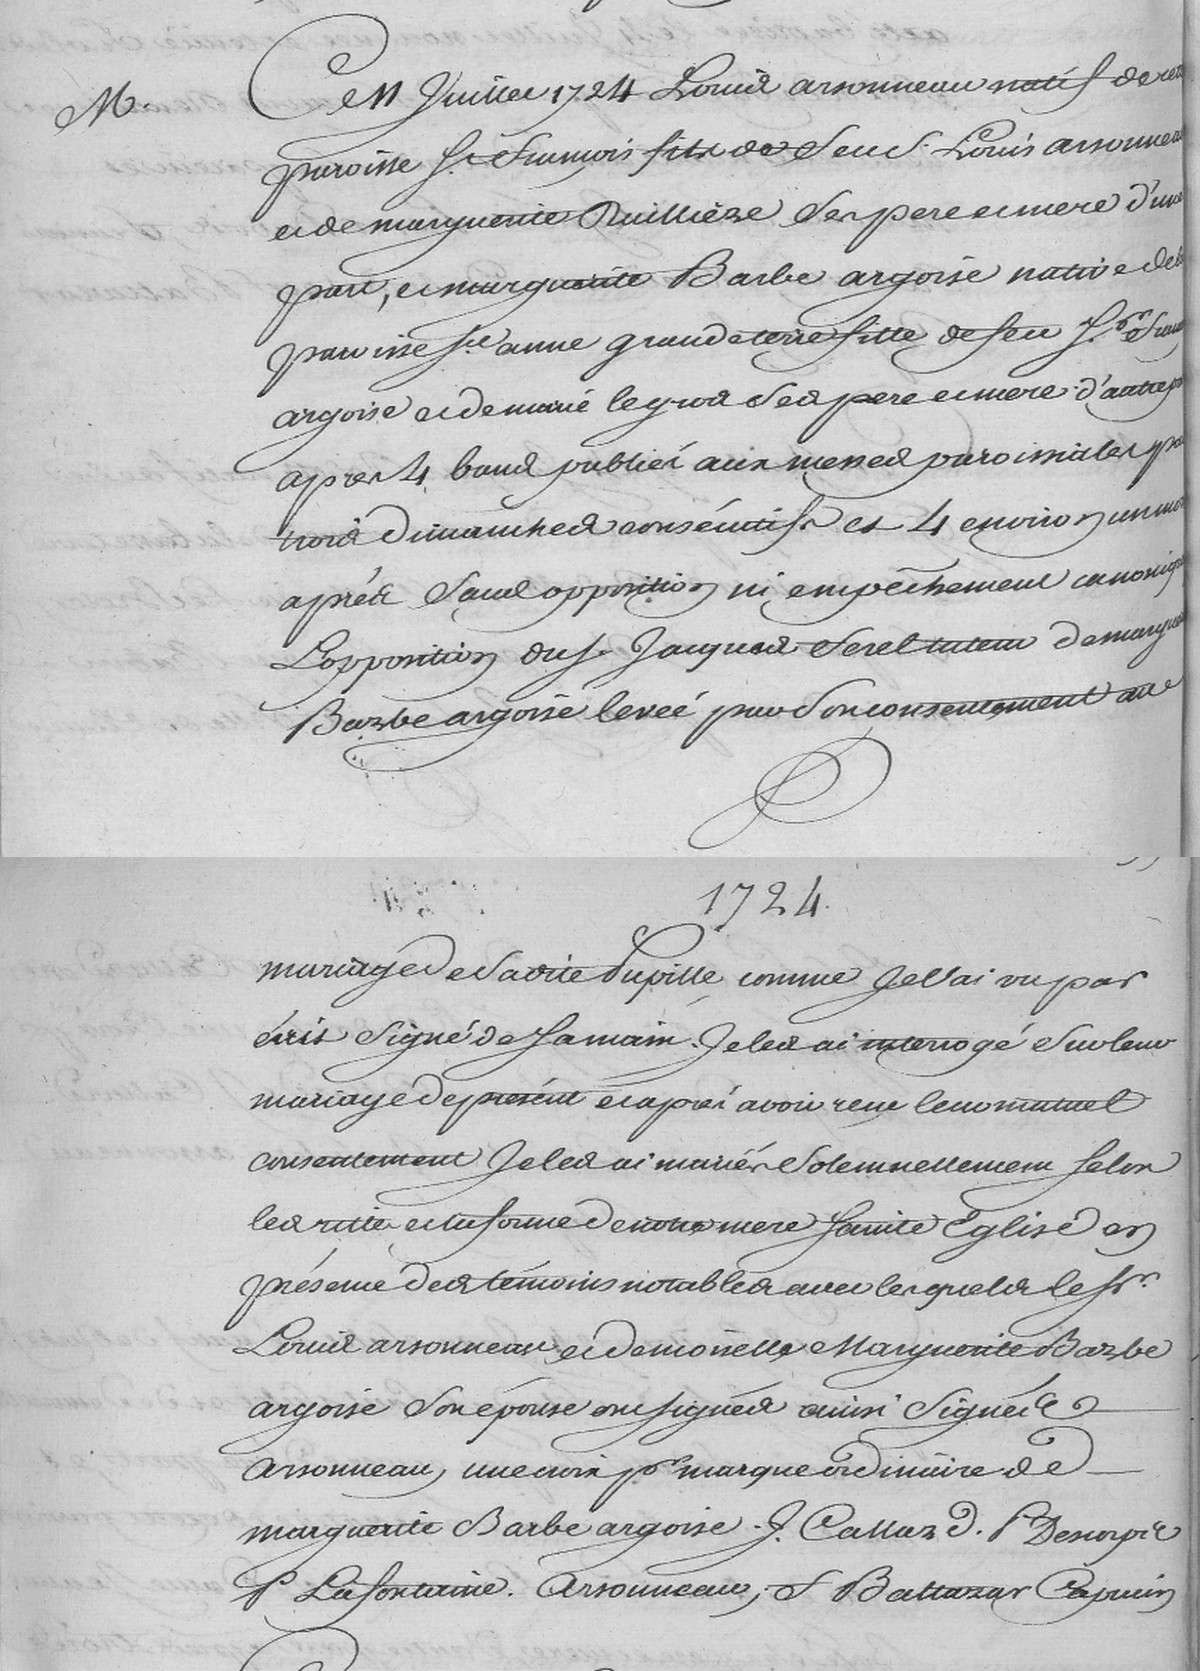 M.
Ce 11 Juillet 1724 Louis arsonneau natif de cette
paroisse St. François fils de feu S. Louis arsonneau
et de marguerite Ruillieze ses pere et mere d'une
part, et marguerite Barbe argoise native de la
paroisse Ste anne grande terre fille de feu Sr.
argoise et de marie legros ses pere et mere d'autre
apres 4 bans publiés aux messes paroissiales
trois dimanches consécutifs et 4 environ un mois
aprés sans opposition ni empêchement canonique
L'opposition du S. Jacques Serel tuteur de
Barbe argoise levée par son consentement au
1724.
mariage de sa dite Pupille comme Je l'ai vu par
écrit signé de sa main. Je les ai interrogé sur leur
mariage de présent et aprés avoir recu leur mutuel
consentement Je les ai mariés solemnellement selon
les rittes et la forme de notre mere sainte Eglise en
présence des témoins notables avec lesquels le Sr.
Louis arsonneau et demoiselle Marguerite Barbe
argoise son épouse ont signés ainsi signés
arsonneau, une croix pr marque ordinaire de
marguerite Barbe argoise. J. Callard. P
P Lafontaine. Arsonneau, F Baltazar Capucin